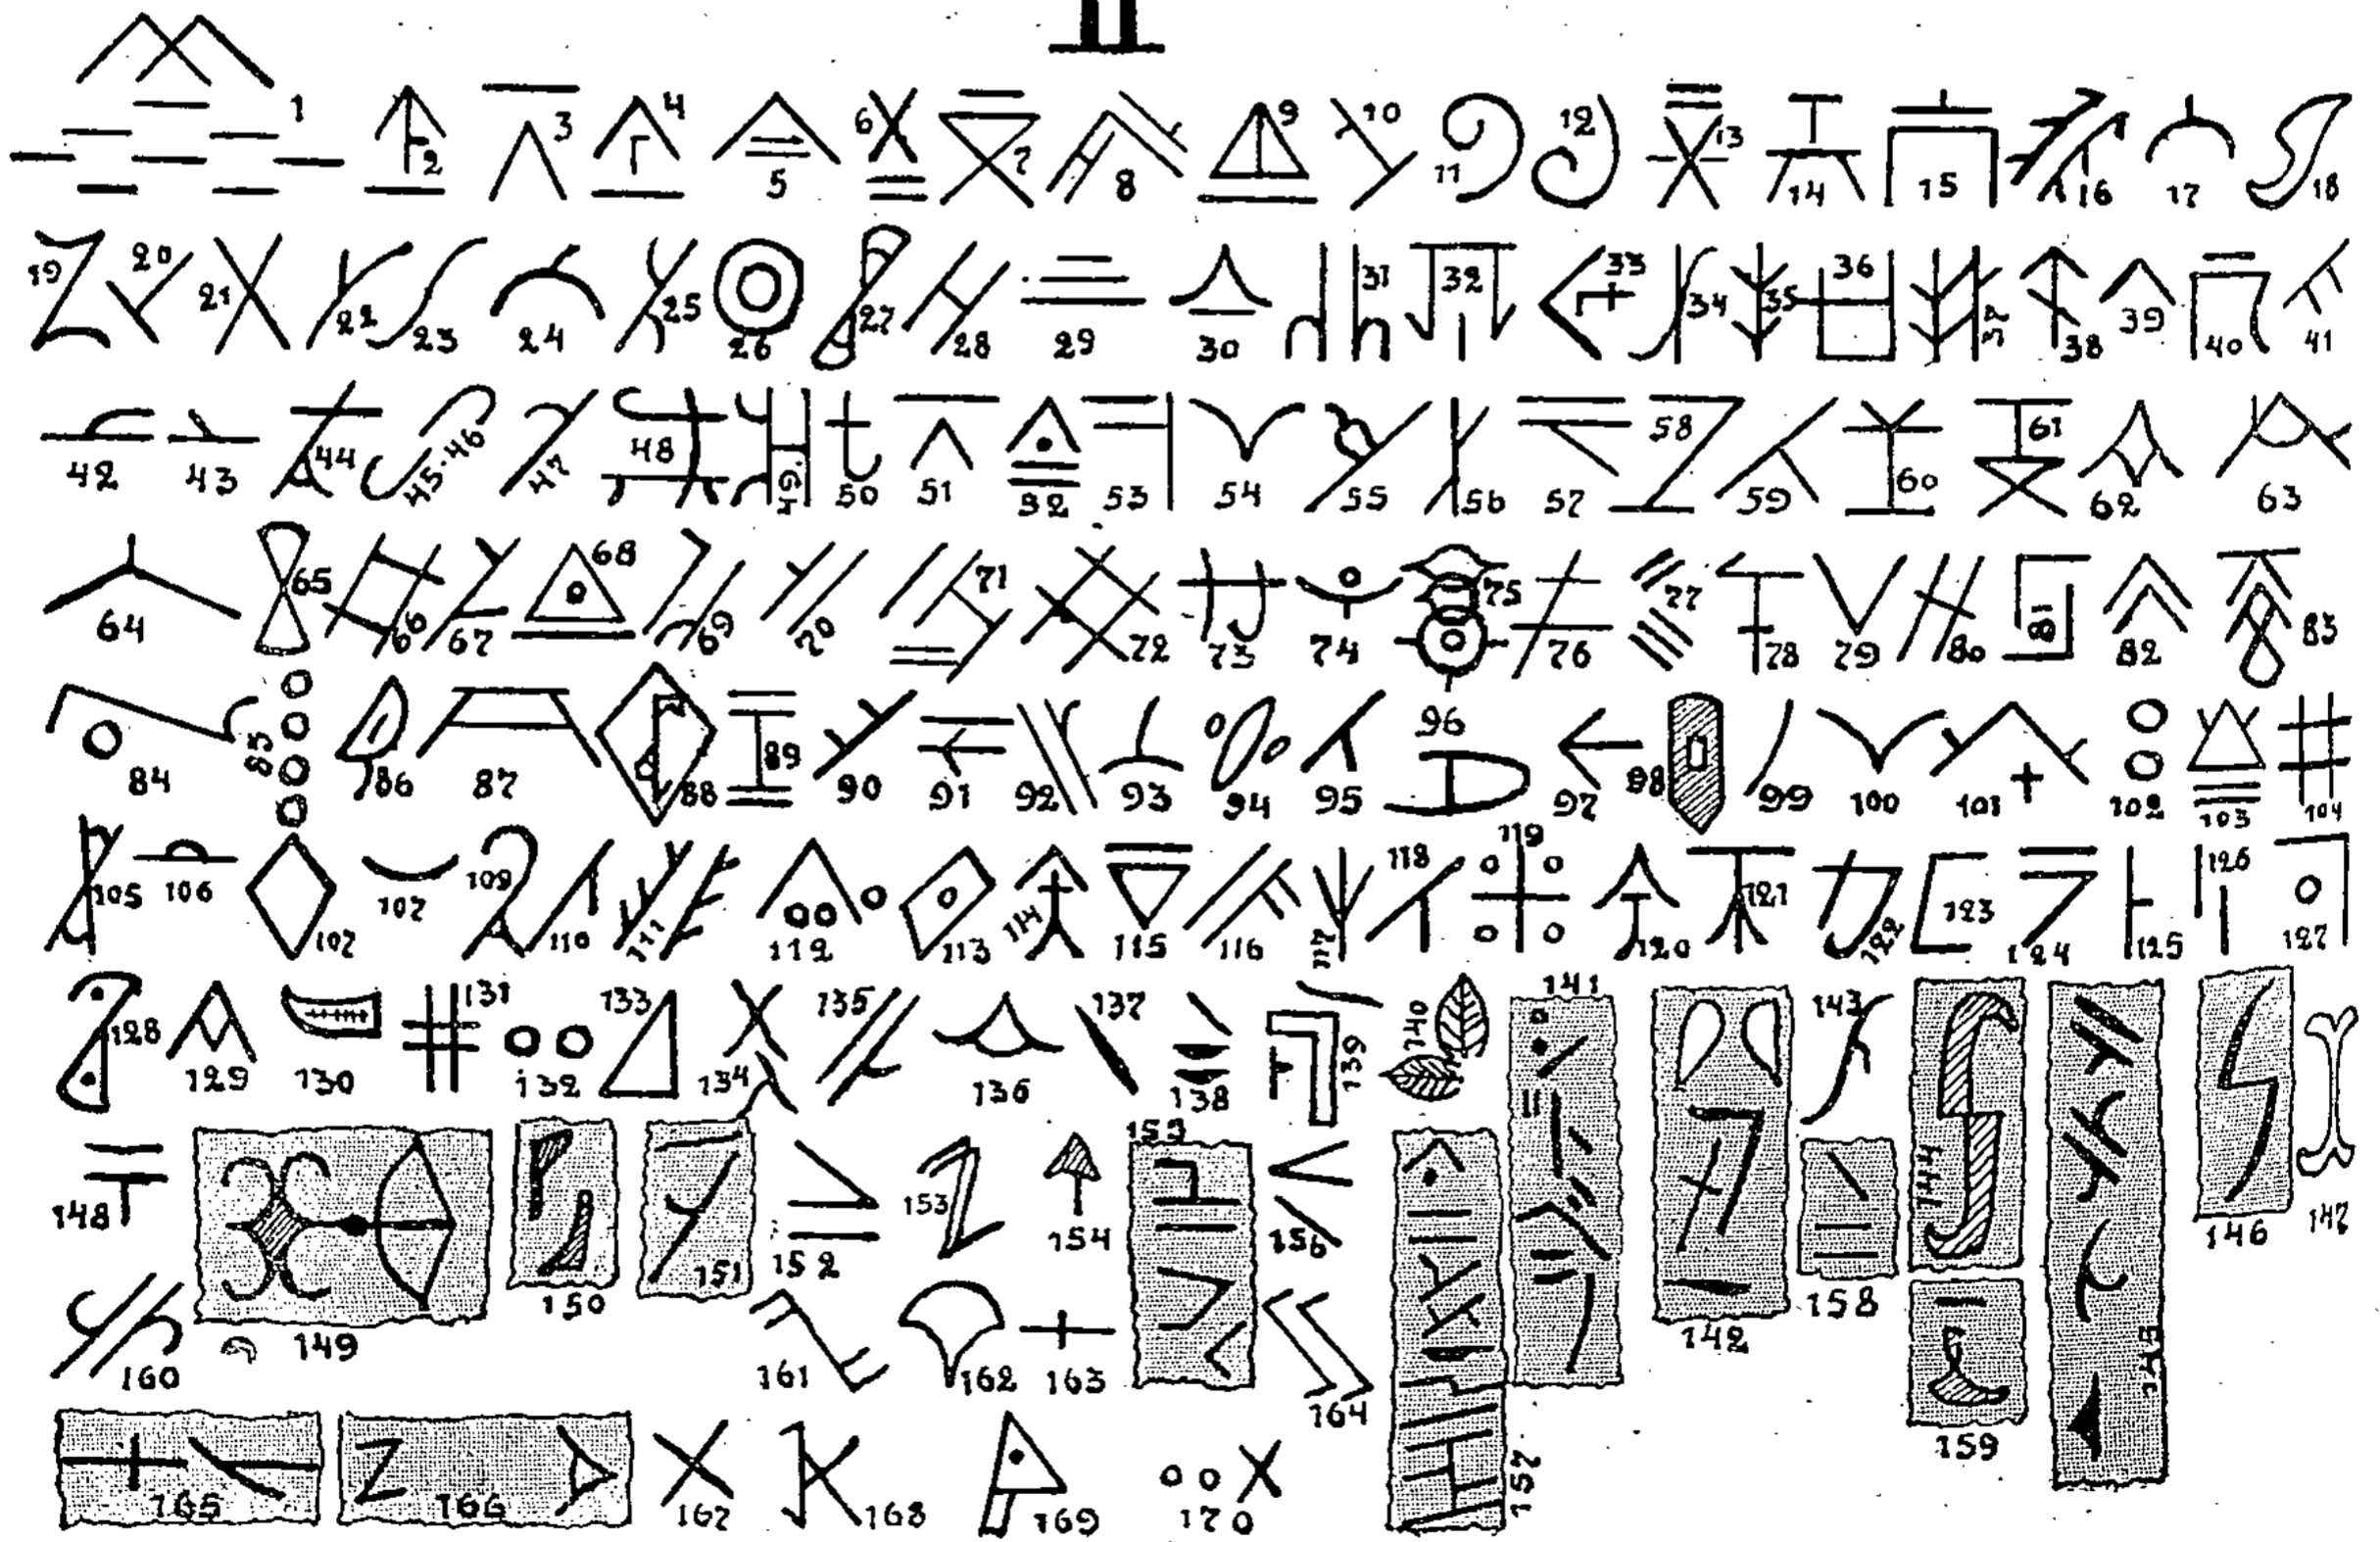 II
1 2 3 4 5 6 7 8 9 10 11 12 13 14 15 16 17 18
19 20 21 22 23 24 25 26 27 28 29 30 31 32 33 34 35 36 37 38 39 40 41
42 43 44 45-46 47 48 49 50 51 52 53 54 55 56 57 58 59 60 61 62 63
64 65 66 67 68 69 70 71 72 73 74 75 76 77 78 79 80 81 82 83
84 85 86 87 88 89 90 91 92 93 94 95 96 97 98 99 100 101 102 103 104
105 106 107 107 109 110 111 112 113 114 115 116 117 118 119 120 121 122 123 124 125 126 127
128 129 130 131 132 133 134 135 136 137 138 139 140 141 142 143 144 145 146 147
148 149 150 151 152 153 154 155 156 157 158 159
160 161 162 163 164
165 166 167 168 169 170